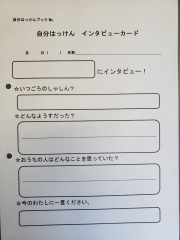 自分はっけんブック No.
自分はっけん　インタビューカード
月　　日(　　)　名前
にインタビュー!
☆いつごろのしゃしん?
☆どんなようすだった?
☆おうちの人はどんなことを思っていた?
☆今のわたしに一言ください。